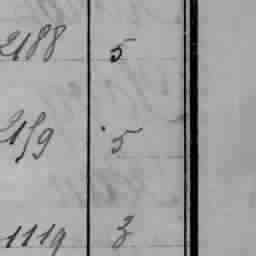 2188 5
2159 5
1119 3